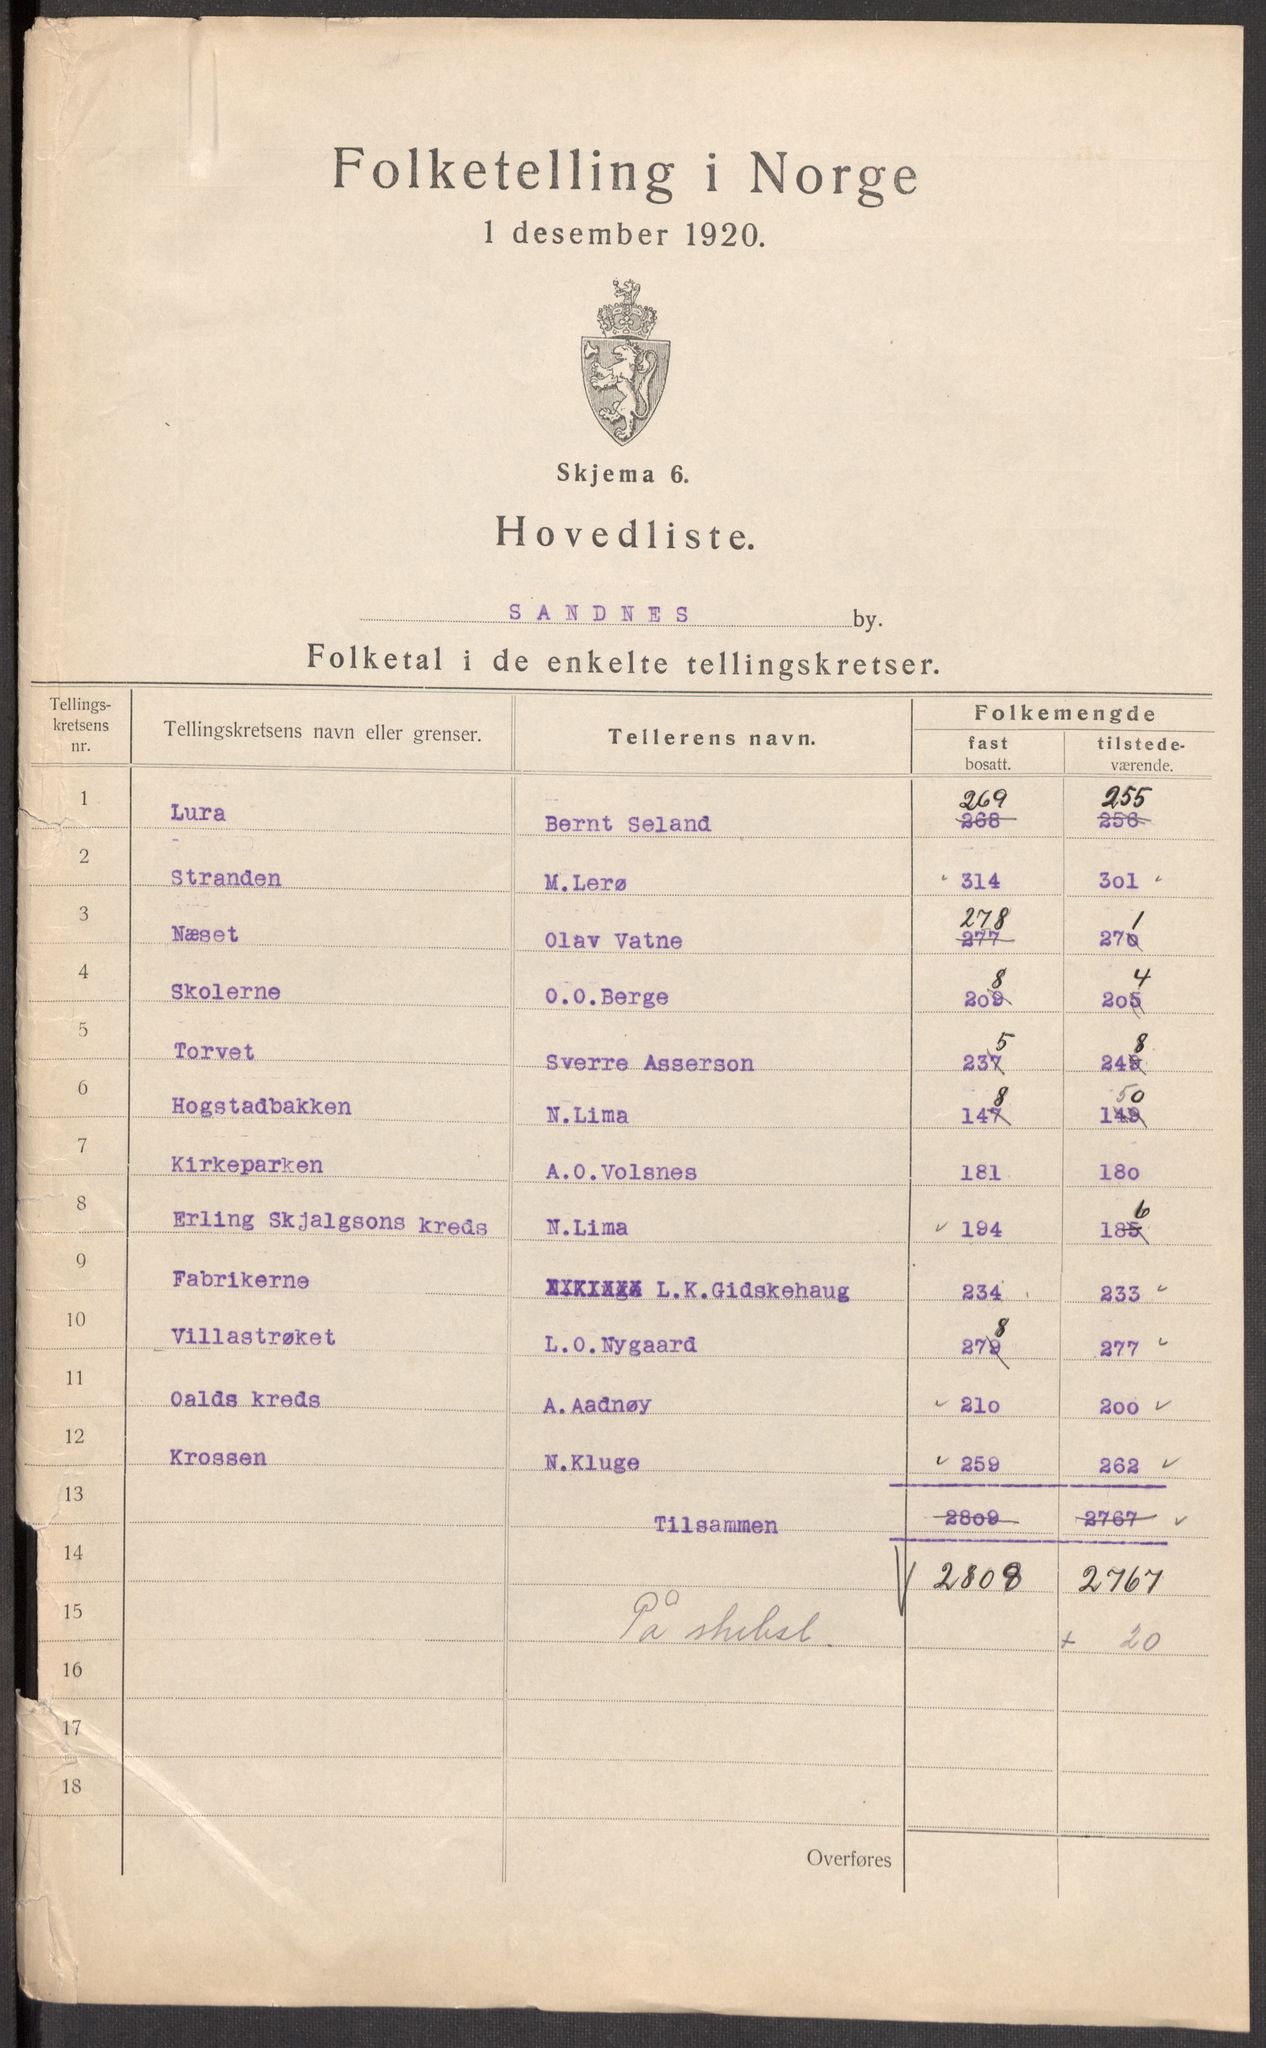 Folketelling i Norge
1 desember 1920.
Skjema 6.
Hovedliste.
SANDNES by.
Folketal i de enkelte tellingskretser.
Tellings-kretsens nr. Tellingskretsens navn eller grenser. Tellerens navn. Folkemengde
fast bosatt. tilstede-værende.
269 255
1 Lura Bernt Seland 268 256
2 Stranden M.Lerø 314 301
278 1
3 Næset Olav Vatne 277 270
8 4
4 Skolerne O.O.Berge 209 205
5 8
5 Torvet Sverre Asserson 237 249
8 50
6 Hogstadbakken N.Lima 147 149
7 Kirkeparken A.O.Volsnes 181 180
6
8 Erling Skjalgsons kreds N.Lima 194 185
9 Fabrikerne L.K.Gidskehaug 234 233
8
10 Villastrøket L.O.Nygaard 279 277
11 Oalds kreds A.Aadnøy 210 200
12 Krossen N.Kluge 259 262
13 Tilsammen 2809 2767
14 2808 2767
15 På + 20
16
17
18
Overføres